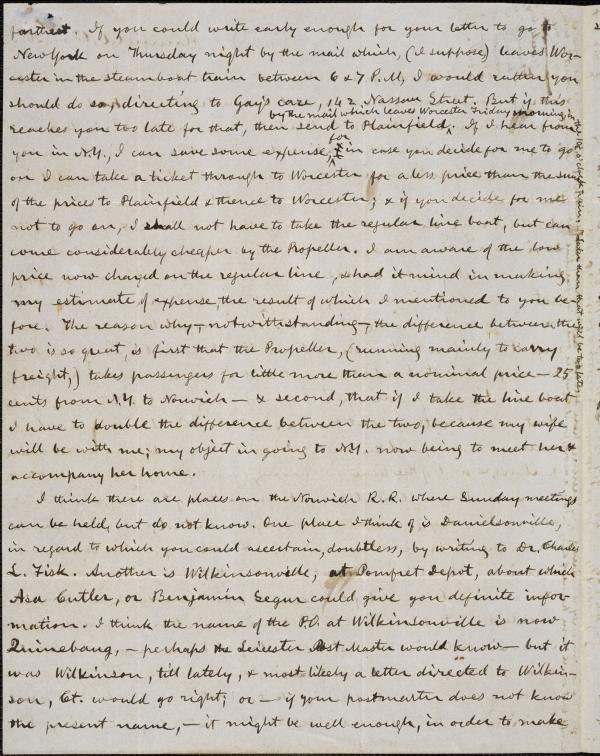 farthest. If you could write early enough for your letter to go to
New York on Thursday night by the mail which, (I suppose) leaves Wor-
cester in the steamboat train between 6 & 7 P.M, I would rather you
should do so, directing to Gay's care, 142 Nassau Street. But if this
by the mail which leaves Worcester Friday morning in
reaches you too late for that, then send to Plainfield,. If I hear from
for
you in N.Y., I can save some expense, in case you decide for me to go
on I can take a ticket through to Worcester for a less price than the sum
of the prices to Plainfield & thence to Worcester; & if you decide for me
not to go on, I shall not have to take the regular line boat, but can
come considerably cheaper by the Propeller. I am aware of the low
price now charged on the regular line, & had it mind in making
my estimate of expense, the result of which I mentioned to you be-
fore. The reason why, notwithstanding, the difference between the
two is so great, is first that the Propeller, (running mainly to carry
freight,) takes passengers for little more than a nominal price — 25
cents from N.Y. to Norwich — & second, that if I take the line boat
I have to double the difference between the two, because my wife
will be with me; my object in going to N.Y. now being to meet her &
accompany her home.
I think there are places on the Norwich R.R. where Sunday meetings
can be held, but do not know. One place I think of is Danielsonville,
in regard to which you could ascertain, doubtless, by writing to Dr. Charles
L. Fisk. Another is Wilkinsonville, at Pomfret Depot, about which
Asa Cutler, or Benjamin Segur could give you definite infor-
mation. I think the name of the P.O. at Wilkinsonville is now
Quinebaug, — perhaps the Leicester Post Master would know — but it
was Wilkinson, till lately, & most likely a letter directed to Wilkin-
son, Ct. would go right; or — if your postmaster does not know
the present name, — it might be well enough, in order to make